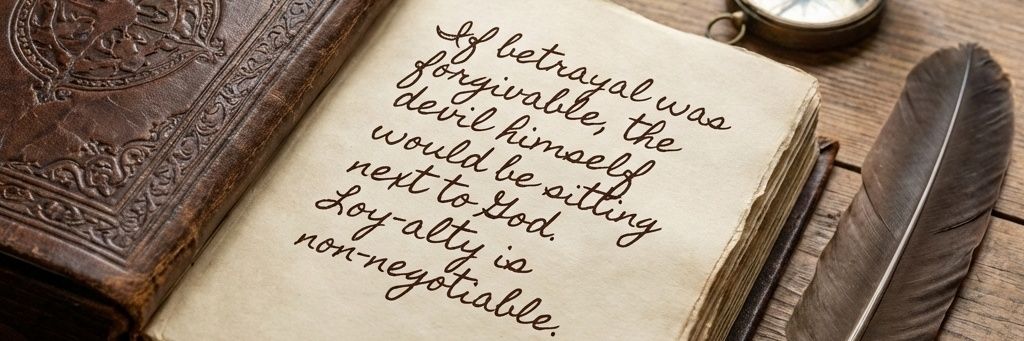 If betrayal was
forgivable, the
devil himself
would be sitting
next to God.
Loy-alty is
non-negotiable.